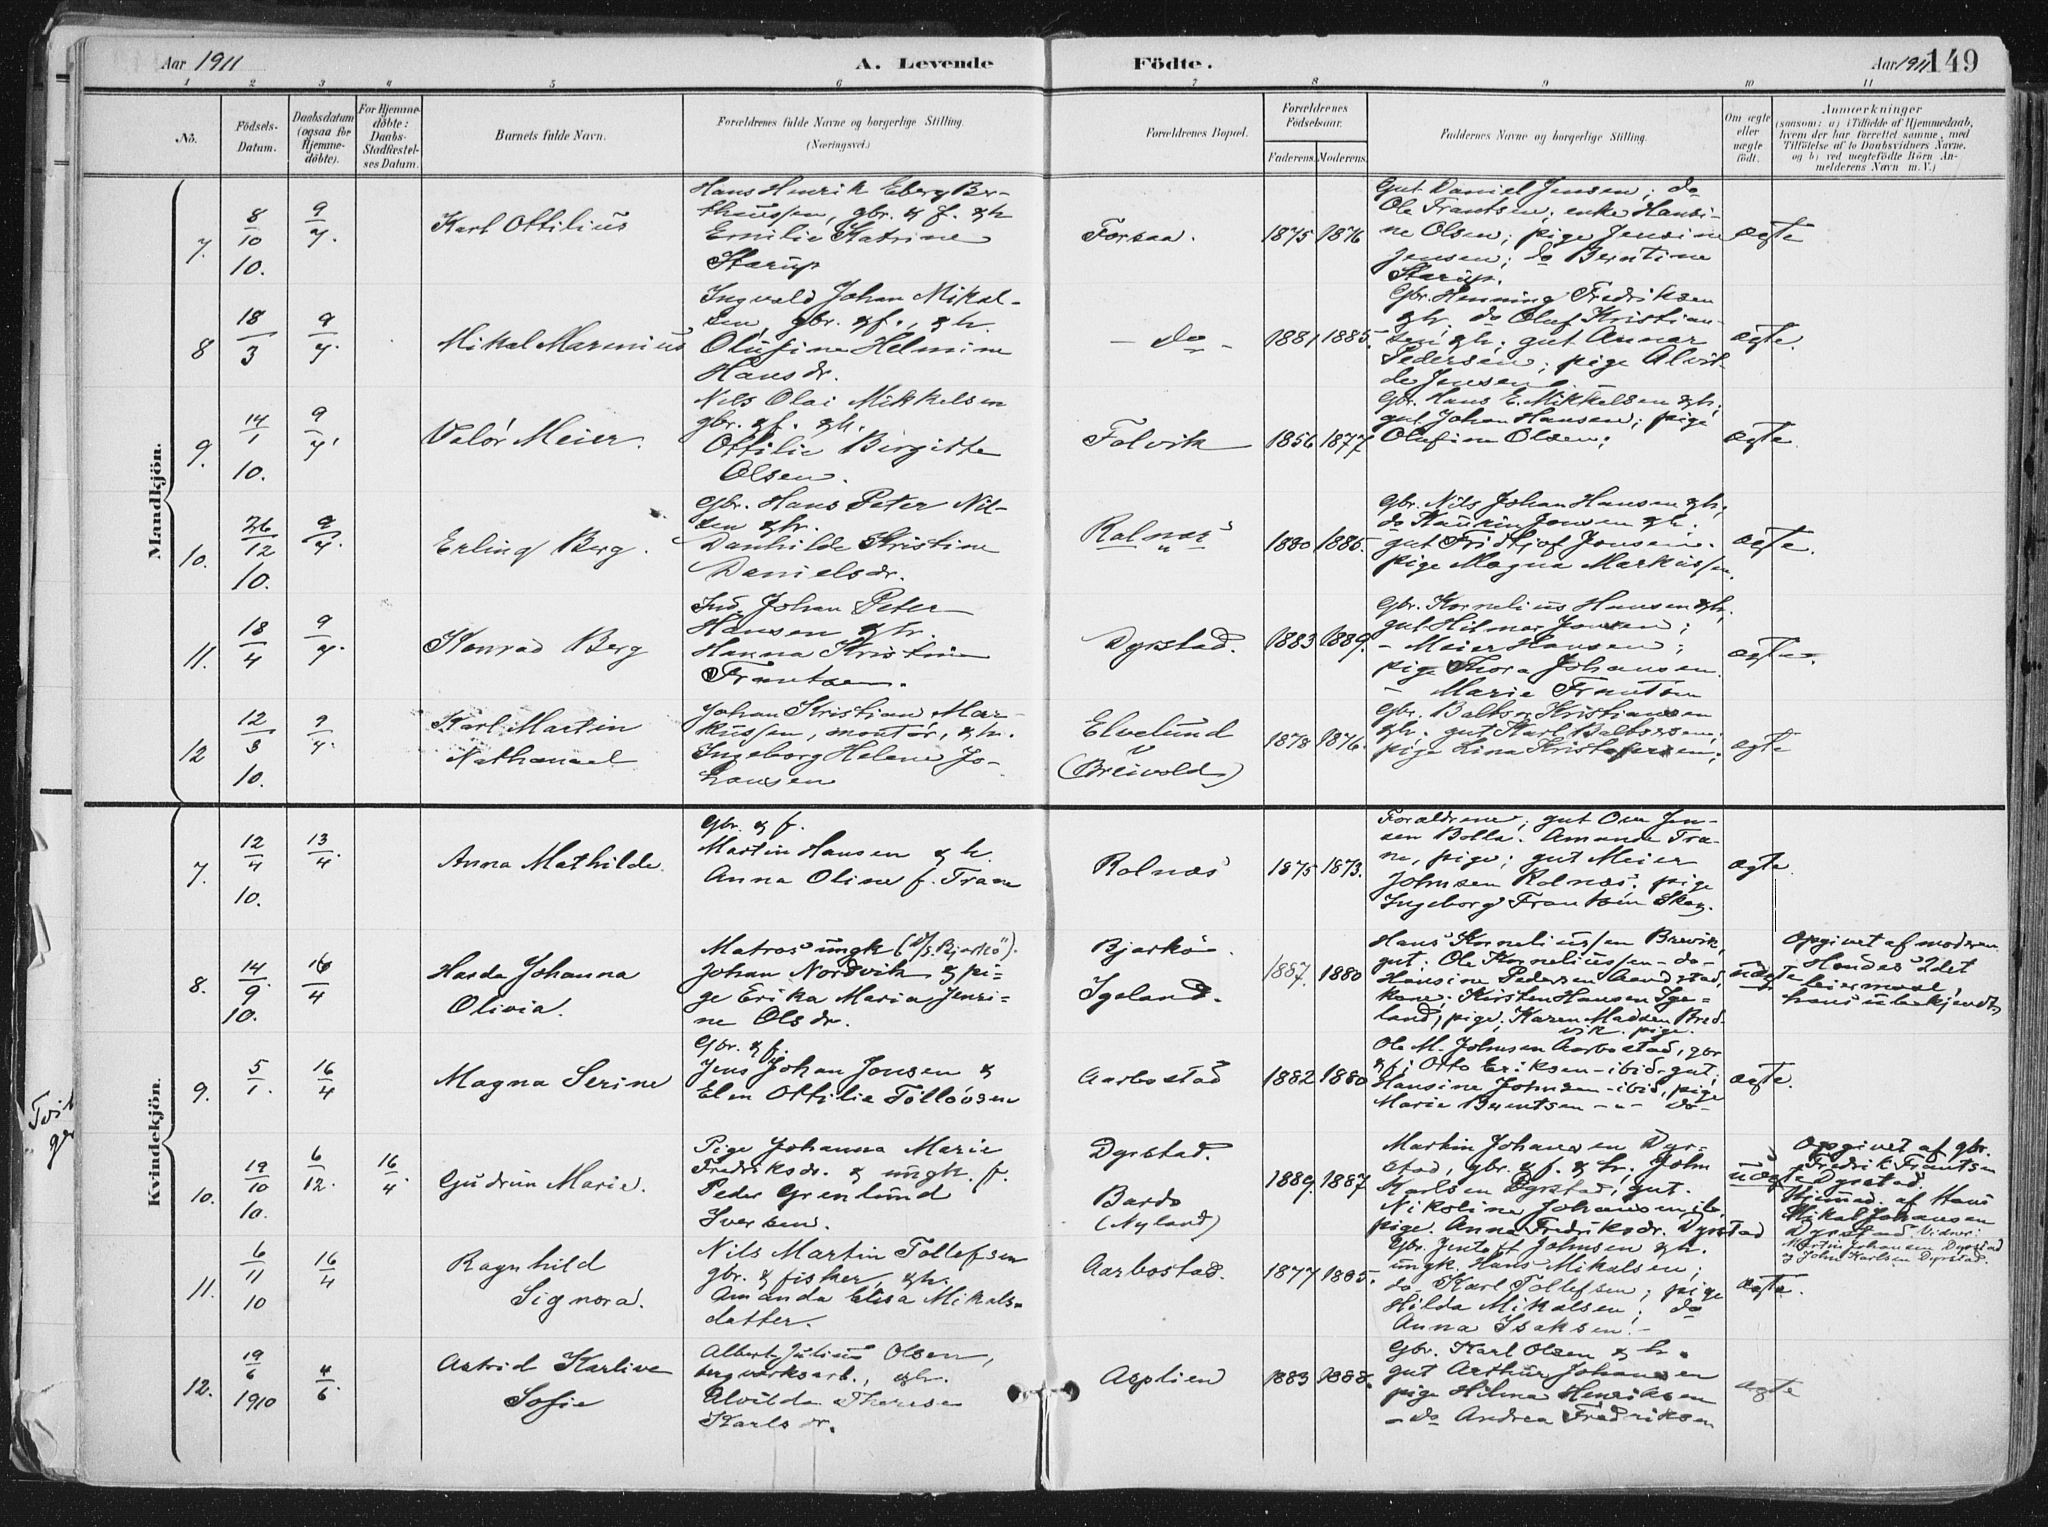 Aar 1911
A. Levende
Födte.
Aar 1911
149
1 2 3 4 5 6 7 8 9 10 11
No.
Födsels-
Datum.
Daabsdatum
(ogsaa for
Hjemme-
döbte).
For Hjemme-
döbte:
Daabs-
Stadfæstel-
ses Datum.
Barnets fulde Navn.
Forældrenes fulde Navne og borgerlige Stilling.
(Næringsvei.)
Forældrenes Bopæl.
Forældrenes
Födselsaar.
Faderens. Moderens.
Faddernes Navne og borgerlige Stilling.
Om ægte
eller
uægte
födt.
Anmærkninger
(saasom: a) i Tilfælde af Hjemmedaab,
hvem der har forrettet samme, med
Tilföielse af to Daabsvidners Navne.
og b) ved uægtefödte Börn An-
melderens Navn m. V.)
Mandkjön.
7.
8/10
10.
9/4.
Karl Ottilius
Hans Henrik Eberg Ber-
theussen, gbr. & f. & h
Emilie Katrine
Starup
Forsaa.
1875 1876
Gut Daniel Jensen; do
Ole Frantsen; enke Hansi-
ne Olsen; pige Jensine
Jensen; do Berntine
Starup.
ægte
8
18/3
9/4.
Mikal Marenius
Ingvald Johan Mikal-
sen, gbr. & f., & h.
Olufine Helmine
Hansdr.
- do -
1881. 1885.
Gbr. Henning Fredriksen
& h. do Oluf Kristian-
sen & h; gut Annar
Pedersen; pige Alvil-
de Jensen
ægte.
9.
14/1
10.
9/4.
Valör Meier.
Nils Olai Mikkelsen
gbr. & f. & h.
Ottilie Birgitte
Olsen.
Folvik
1856 1877
Gbr. Hans E. Mikkelsen & h;
gut Johan Hansen; pige
Olufine Olsen;
ægte.
10.
26/12
10.
9/4.
Erling Berg.
Gbr. Hans Peter Nil-
sen & h.
Danhilde Kristine
Danielsdr.
Rolnæs
1880 1885.
Gbr. Nils Johan Hansen & h,
do Jensen & h.
gut Fridtjof Jensen.
pige Magna Markussen.
ægte.
11.
18/4
9/4.
Konrad Berg
Ind. Johan Peter
Hansen & h.
Hanna Kristine
Frantsen.
Dyrstad.
1883 1889.
Gbr. Kornelius Hansen & h,
gut Hilmar Jensen;
- Meier Hansen;
pige Thora Johansen.
- Marie Frantsen
ægte.
12
12/3
10.
9/4.
Karl Martin
Nathanael
Johan Kristian Mar-
kussen, montør, & h.
Ingeborg Helene Jo-
hansen
Elvelund
(Breivold)
1878 1876.
Gbr. Baltser Kristiansen
& h; gut Karl Baltsersen;
pige Lina Kristofersen;
ægte
Kvindekjön.
7.
12/4
10.
13/4.
Anna Mathilde
Gbr. & f.
Martin Hansen & h.
Anna Oline f. Trane
Rolnæs
1875 1873.
Forældrene; gut Ove Jen-
sen Bolla. Amanda Tra-
ne, pige; gut Meier
Johnsen Rolnæs; pige
Ingeborg Frantsen Skog.
ægte.
8.
14/9
10.
16/4
Harda Johanna
Olivia.
Matros ungk (D/S. Bjarkö)
Johan Nordvik & pi-
ge Erika Maria Jenri-
ne Olsdr.
Bjarkö
Igeland.
1887. 1880
Hans Korneliussen Brevik,
gut. Ole Korneliussen -do-
Hansine Pedersen Aandstad,
kone. Kirsten Hansen Ige-
land, pige. Karen Madsen Bred-
vik. pige.
uægte
Opgivet af moderen.
Hendes 2det
leiermaal,
hans ubekjendt
9.
5/1.
16/4
Magna Serine
Gbr. & f.
Jens Johan Jensen &
Elen Ottilie Tollövsen
Aarbostad
1882 1880
Ole M. Johnsen Aarbostad, gbr
& f; Otto Eriksen - ibid, gut;
Hansine Johnsen - ibid, pige
Marie Berntsen - " - do -
ægte.
10.
19/10
10.
6/12.
16/4
Gudrun Marie.
Pige Johanna Marie
Fredriksdr. & ungk. f.
Peder Grenlund
Iversen.
Dyrstad.
Bardo
(Nyland)
1889. 1887
Martin Johansen Dyr-
stad, gbr. & f. & h. John
Karlsen Dyrstad, gut.
Nikoline Johansen ib,
pige. Anna Fredriksdr. Dyrstad
uægte
Opgivet af gbr.
Fredrik Frantsen
Dyrstad.
Hjemmed. af Hans
Mikal Johansen
Dyrstad. Vidner:
Martin Johansen Dyrstad
og John Karlsen Dyrstad.
11.
6/11
10
16/4
Ragnhild
Signora.
Nils Martin Tollefsen
gbr. & fisker, & h.
Amanda Elisa Mikals-
datter.
Aarbostad.
1877 1885.
Gbr. Jentoft Johnsen & h.
ungk. Hans Mikalsen;
do Karl Tollefsen; pige
Hilda Mikalsen; do
Anna Isaksen. -
ægte.
12.
19/6
1910
4/6.
Astrid Karlive
Sofie
Albert Julius Olsen,
bergverksarb., & h.
Alvilda Therese
Karlsdr.
Asplien
1883 1888.
Gbr. Karl Olsen & h.
gut Arthur Johansen
pige Hilma Henriksen
- do Andrea Fredriksen
ægte